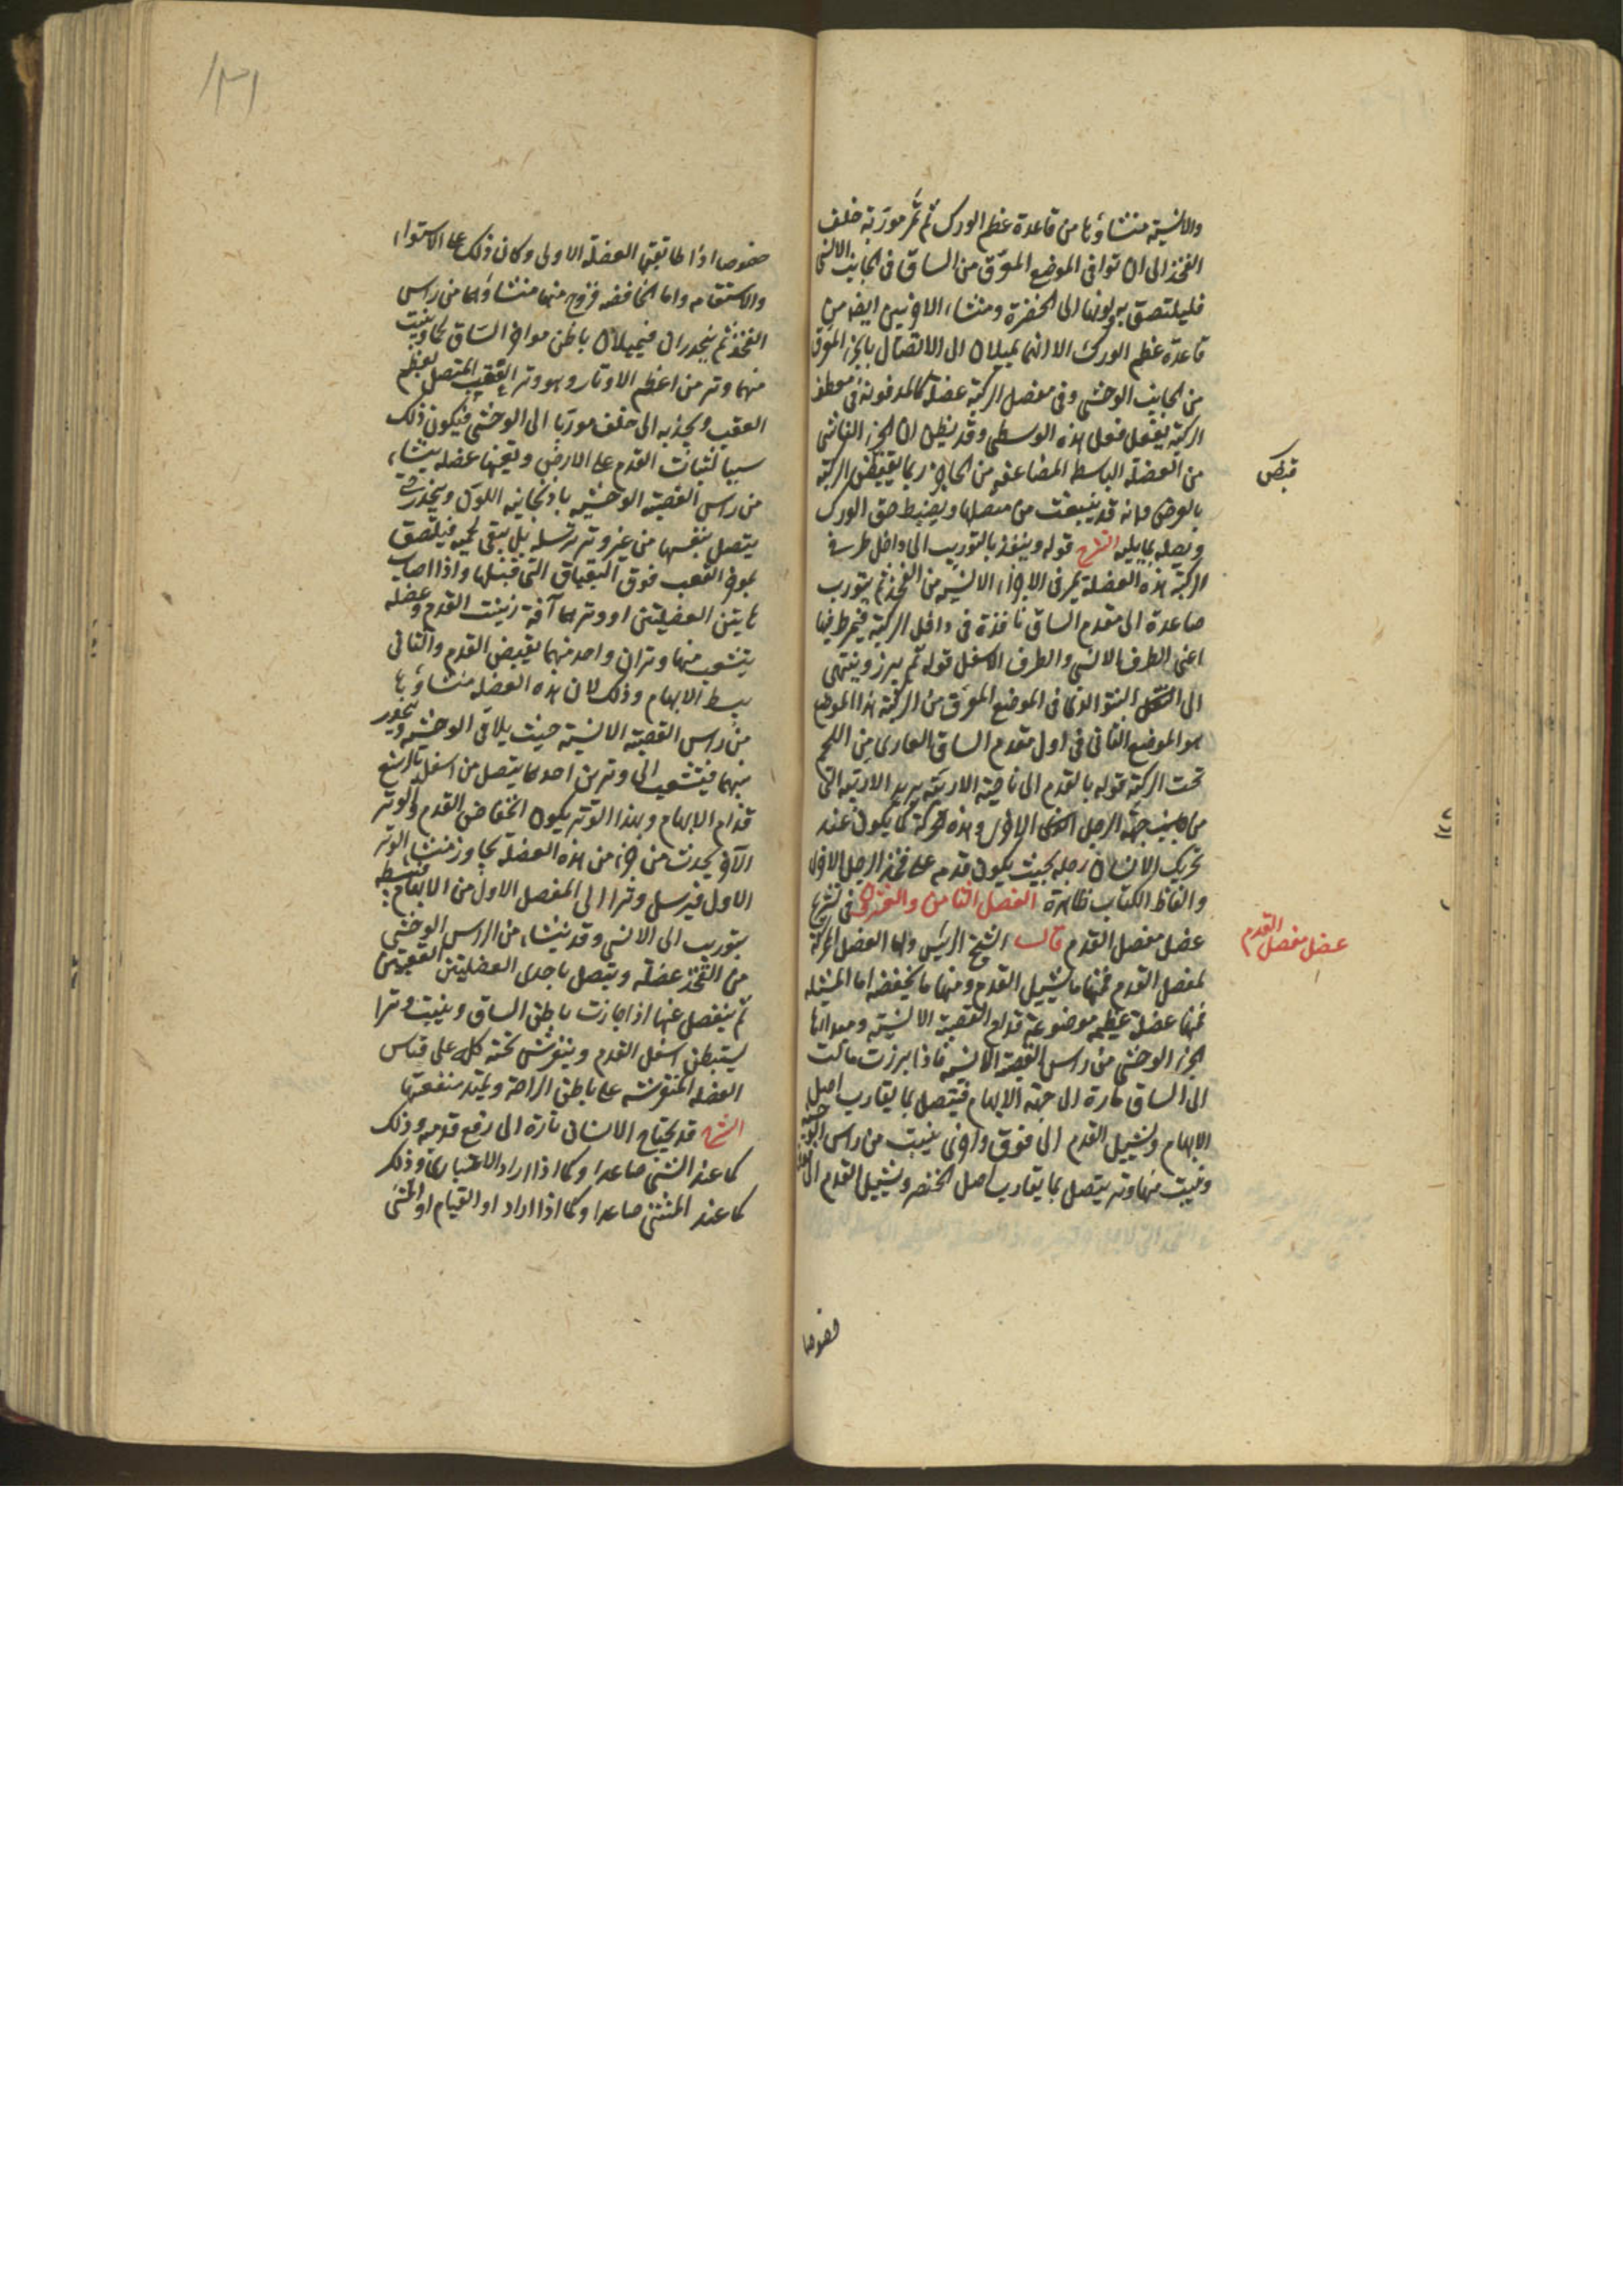 والانسية منشاؤها من قاعدة عظم الورك ثم تمر موربة خلف
الفخذ الى ان توافى الموضع المعرق من الساق فى الجانب الانسى
فيلتصق به ولونها الى الخضرة ومنشاء الاخريين ايضا من
قاعدة عظم الورك الا انهما يميلان الى الاتصال بالجزء المعرق
من الجانب الوحشى وفى مفصل الركبة عضلة كالمدفونة فى معطف
الركبة يفعل فعل هذه الوسطى وقد يظن ان الجزء الناشى
من العضلة الباسطة المضاعفة من الحاجز ربما يقبض الركبة
قبض
بالعرض وانه قد ينبعث من متصلها ويضبط حق الورك
ويصله بما يليه الشرح قوله وينفذ بالتوريب الى داخل طرفى
الركبة هذه العضلة يمر فى الاجزاء الانسية من الفخذ ثم يتورب
صاعدة الى مقدم الساق نافذة فى داخل الركبة
اعنى الطرف الانسى والطرف الاسفل قوله ثم يبرز وينتهى
الى النتو الذى فى الموضع المعرق من الركبة هذا الموضع
هو الموضع الثانى فى اول مقدم الساق العارى من اللحم
تحت الركبة قوله بالقدم الى ناحية الاربية يريد الاربية التى
من جهة الرجل الاخرى وهذه الحركة كما يكون عند
تحريك الانسان رجله بحيث يكون قدمه على فخذ الرجل الاخرى
والفاظ الكتاب ظاهرة الفصل الثامن والعشرون فى تشريح
عضل مفصل القدم قال الشيخ الرئيس واما العضل المحركة
عضل مفصل القدم
لمفصل القدم فمنها ما يشيل القدم ومنها ما يخفضه اما المشيلة
فمنها عضلة عظيمة موضوعة قدام القصبة الانسية ومبداها
الجزء الوحشى من راس القصبة الانسية فاذا برزت مالت
الى الساق مارة الى جهة الابهام فيتصل بما يقارب اصل
الابهام ويشيل القدم الى فوق واخرى ينبت من راس الوحشية
وينبت منها وتر يتصل بما يقارب اصل الخنصر ويشيل القدم الى فوق
خصوصا
١٣١
خصوصا اذا طابقتها العضلة الاولى وكان ذلك على الاستواء
والاستقامه واما الخافضه فزوج منها منشاؤهما من راس
الفخذ ثم ينحدران فيميلان باطن مواخر الساق لحما وينبت
منهما وتر من اعظم الاوتار وهو وتر العقب المتصل بعظم
العقب ويجذبه الى خلف موربا الى الوحشى فيكون ذلك
سببا لثبات القدم على الارض ويعينها عضله ينشاء
من راس القصبة الوحشيه باذنجانيه اللون وينحدر حتى
يتصل بنفسها من غير وتر ترسله بل يبقى لحميه فيلتصق
بموخر العقب فوق التصاق التى قبلها واذا اصاب
هاتين العضلتين او وترهما آفة زمنت القدم وعضله
يتشعب منها وتران واحد منهما يقبض القدم والثانى
يبسط الابهام وذلك لان هذه العضله منشاؤها
من راس القصبة الانسية حيث يلاقى الوحشيه وينحدر
بينهما فيتشعب الى وترين احدهما يتصل من اسفل بالرسغ
قدام الابهام وبهذا الوتر يكون انخفاض القدم والوتر
الآخر يحدث من جزء من هذه العضلة يجاوز منشاء الوتر
الاول فيرسل وترا الى المفصل الاول من الابهام فيبسطه
بتوريب الى الانسى وقد ينشاء من الراس الوحشى
من الفخذ عضلة ويتصل باحدى العضلتين العقبيتين
ثم ينفصل عنها اذا جازت باطن الساق وينبت وترا
يستبطن اسفل القدم وينفرش تحته كله على قياس
العضله المنفرشه على باطن الراحة ويمتد منفعتها
الشرح قد يحتاج الانسان تارة الى رفع قدميه وذلك
كما عند المشى صاعدا وكما اذا اراد الاعتبارى وذلك
كما عند المشى صاعدا وكما اذا اراد او القيام او المشى